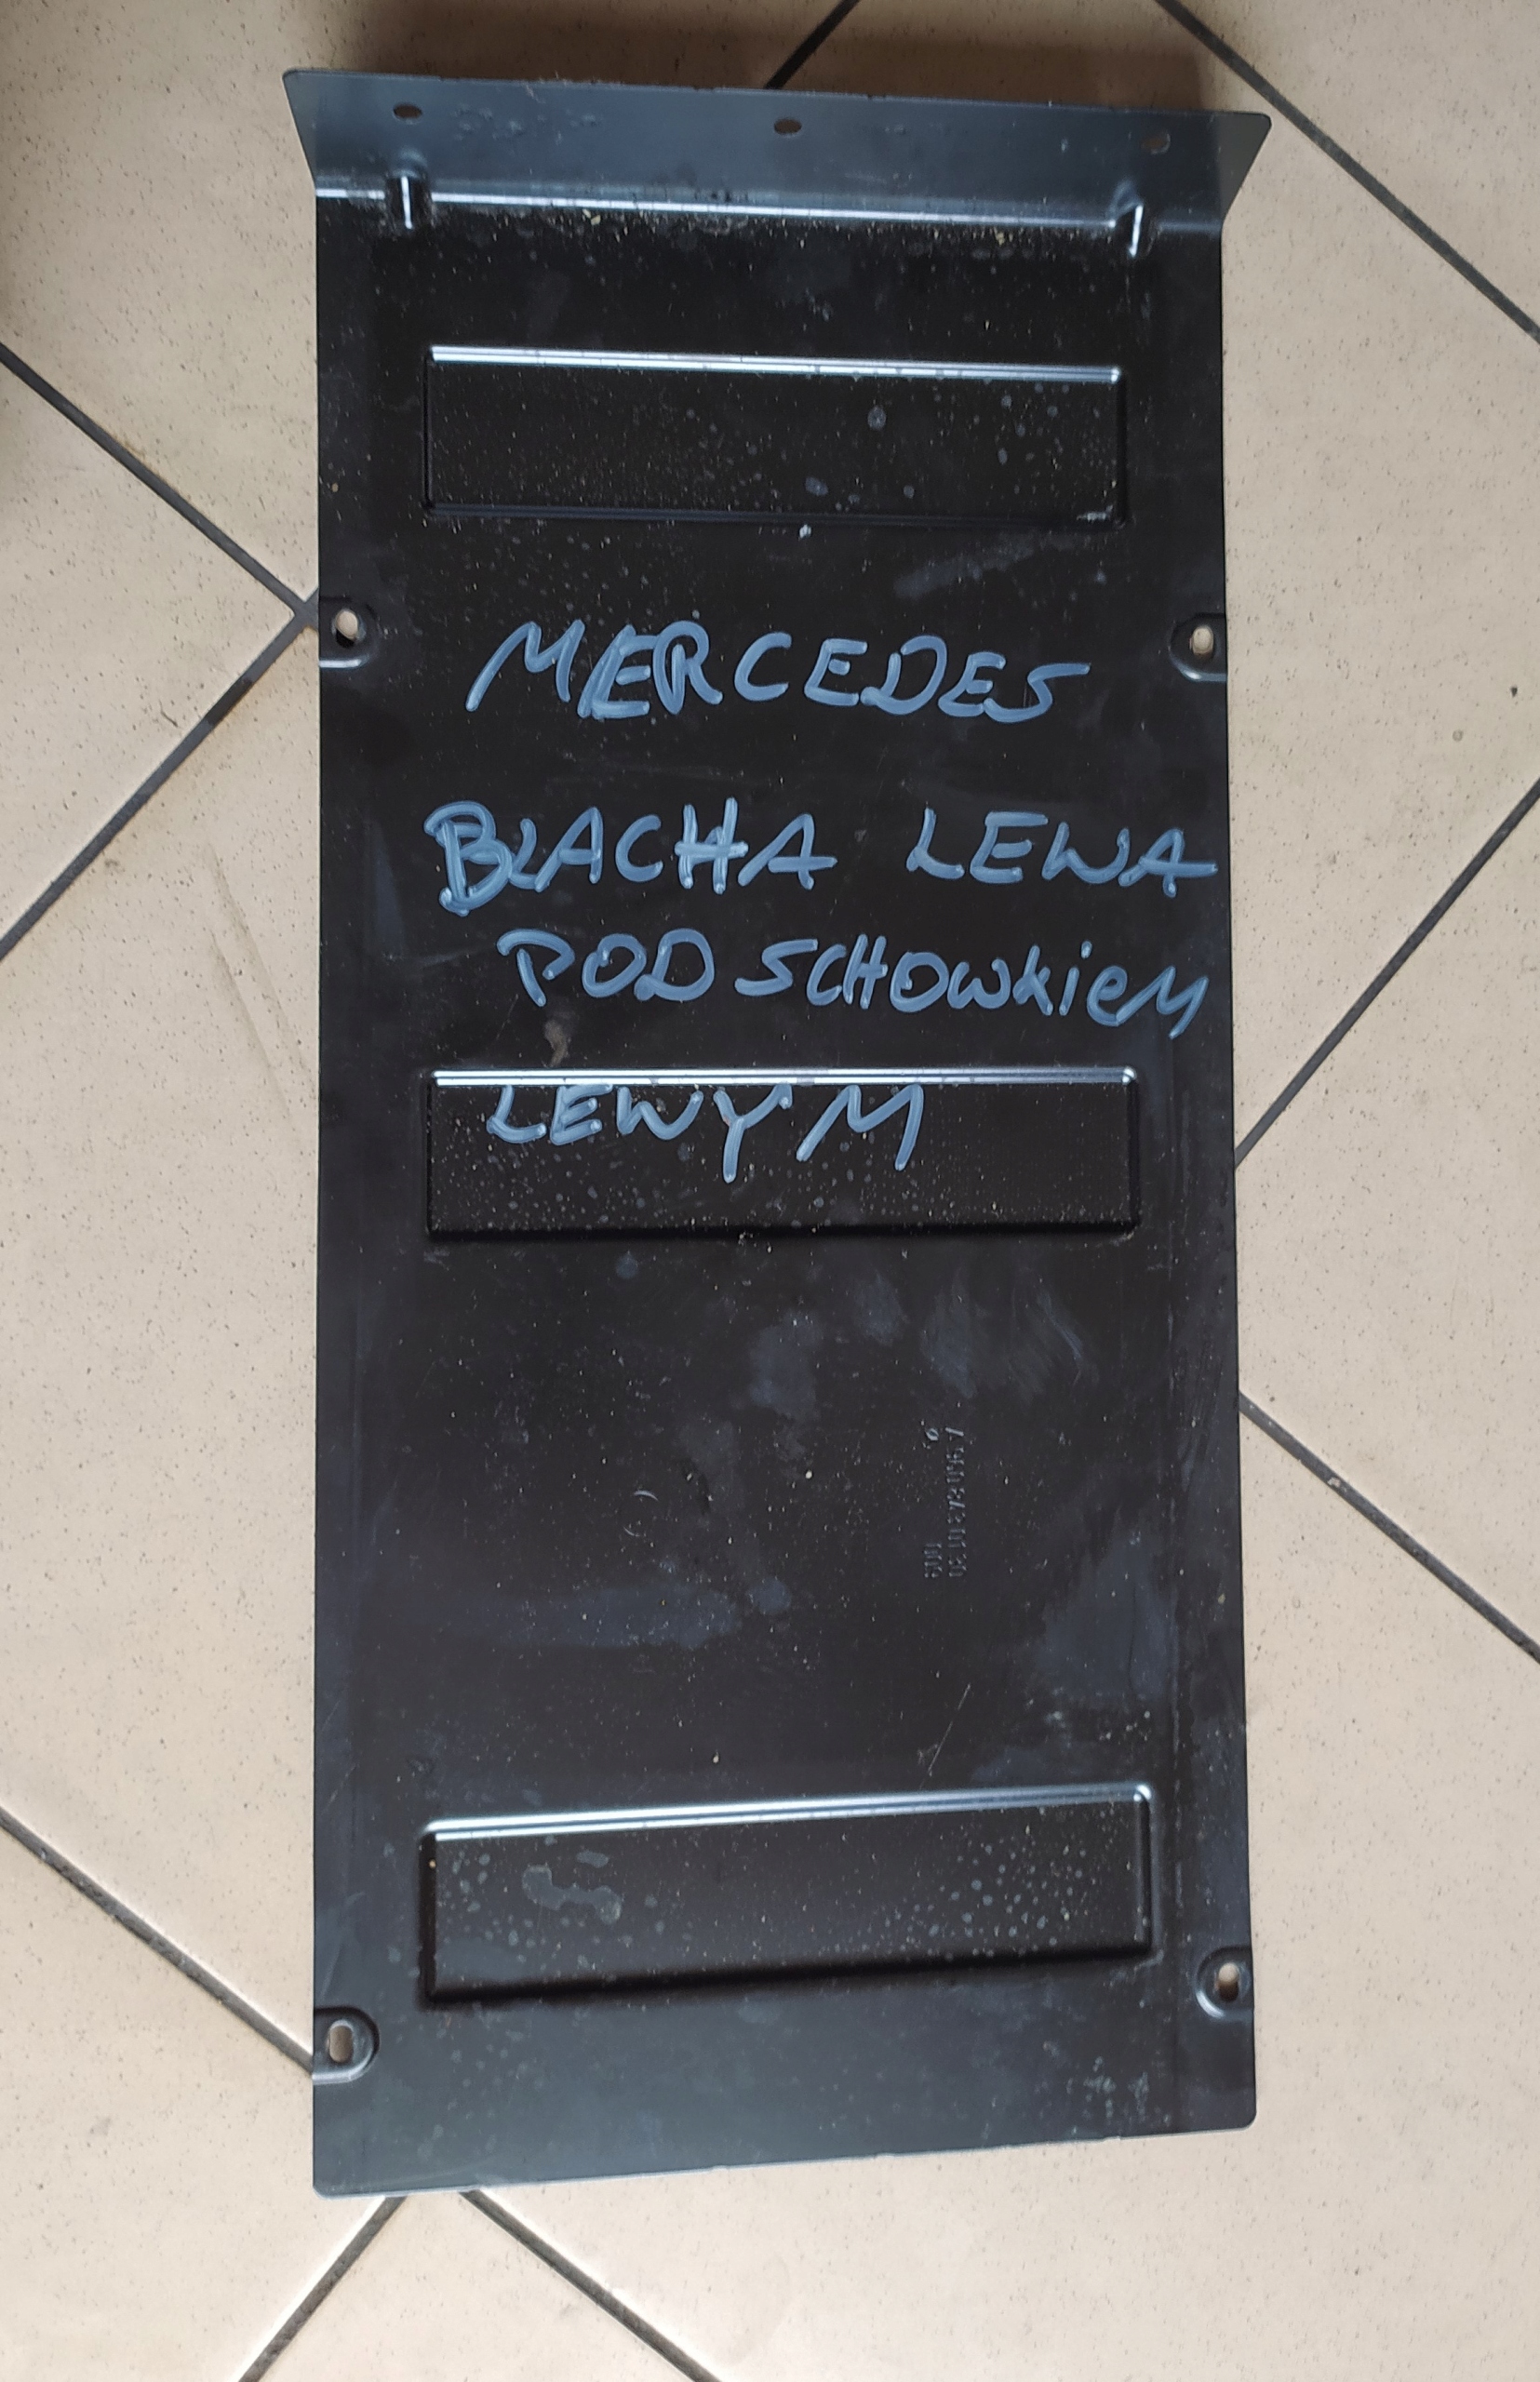 MERCEDES
BLACHA LEWA
POD SCHOWKiEM
LEWYM